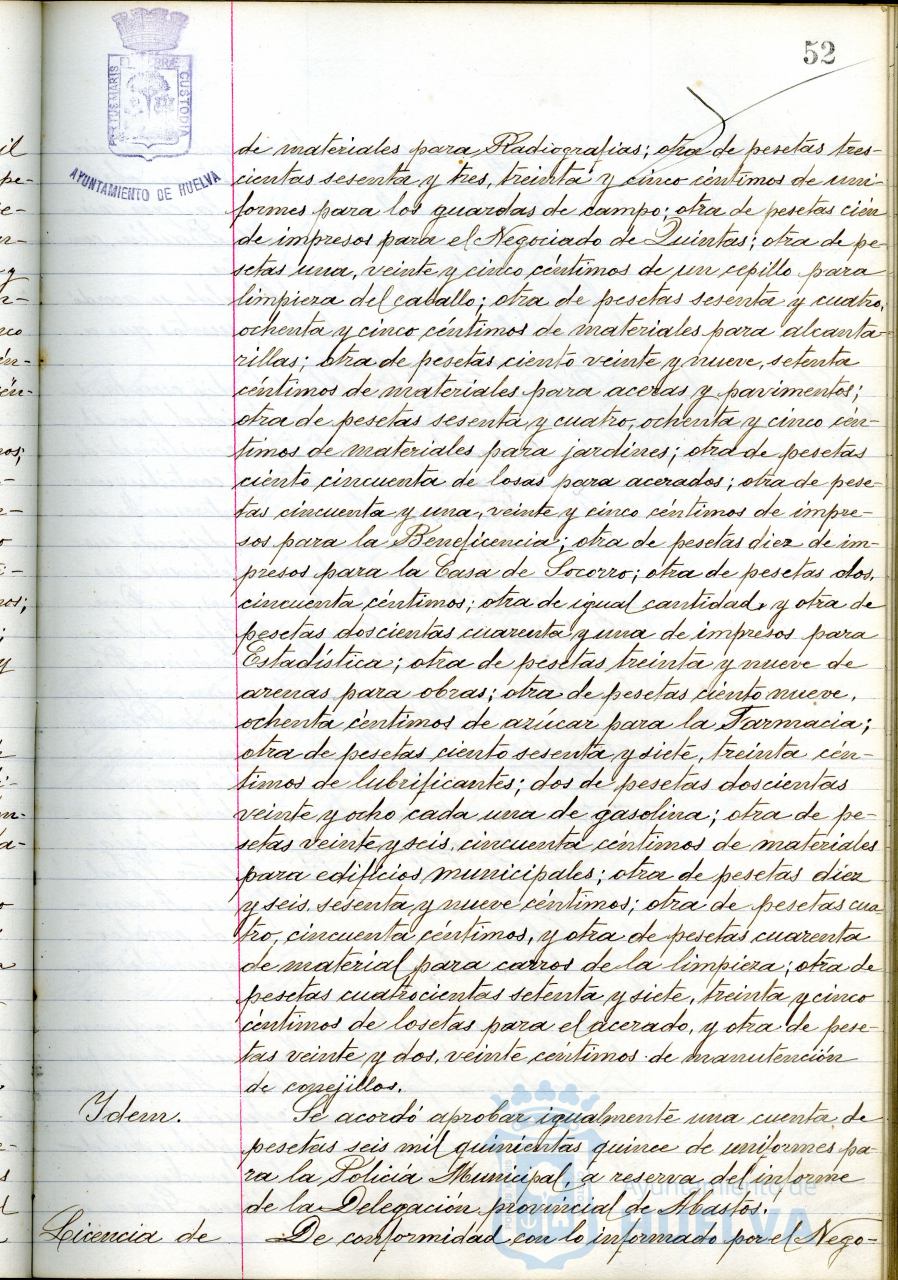 52
PORTUS MARIS ET TERRE CUSTODIA
AYUNTAMIENTO DE HUELVA
de materiales para Radiografias; otra de pesetas tres-
cientas sesenta y tres, treinta y cinco céntimos de uni-
formes para los guardas de campo; otra de pesetas cien
de impresos para el Negociado de Quintas; otra de pe-
setas una, veinte y cinco céntimos de un cepillo para
limpieza del caballo; otra de pesetas sesenta y cuatro,
ochenta y cinco céntimos de materiales para alcanta-
rillas; otra de pesetas ciento veinte y nueve, setenta
céntimos de materiales para aceras y pavimentos;
otra de pesetas sesenta y cuatro, ochenta y cinco cén-
timos de materiales para jardines; otra de pesetas
ciento cincuenta de losas para acerados; otra de pese-
tas cincuenta y una, veinte y cinco céntimos de impre-
sos para la Beneficencia; otra de pesetas diez de im-
presos para la Casa de Socorro; otra de pesetas dos,
cincuenta céntimos; otra de igual cantidad, y otra de
pesetas doscientas cuarenta y una de impresos para
Estadística; otra de pesetas treinta y nueve de
arenas para obras; otra de pesetas ciento nueve,
ochenta céntimos de azúcar para la Farmacia;
otra de pesetas ciento sesenta y siete, treinta cén-
timos de lubrificantes; dos de pesetas doscientas
veinte y ocho cada una de gasolina; otra de pe-
setas veinte y seis, cincuenta céntimos de materiales
para edificios municipales; otra de pesetas diez
y seis, sesenta y nueve céntimos; otra de pesetas cua-
tro, cincuenta céntimos, y otra de pesetas cuarenta
de material para carros de la limpieza; otra de
pesetas cuatrocientas setenta y siete, treinta y cinco
céntimos de losetas para el acerado, y otra de pese-
tas veinte y dos, veinte céntimos de manutención
de conejillos.
Idem. Se acordó aprobar igualmente una cuenta de
pesetas seis mil quinientas quince de uniformes pa-
ra la Policía Municipal, a reserva del informe
de la Delegación provincial de Abastos.
Licencia de De conformidad con lo informado por el Nego-
Ayuntamiento de
HUELVA